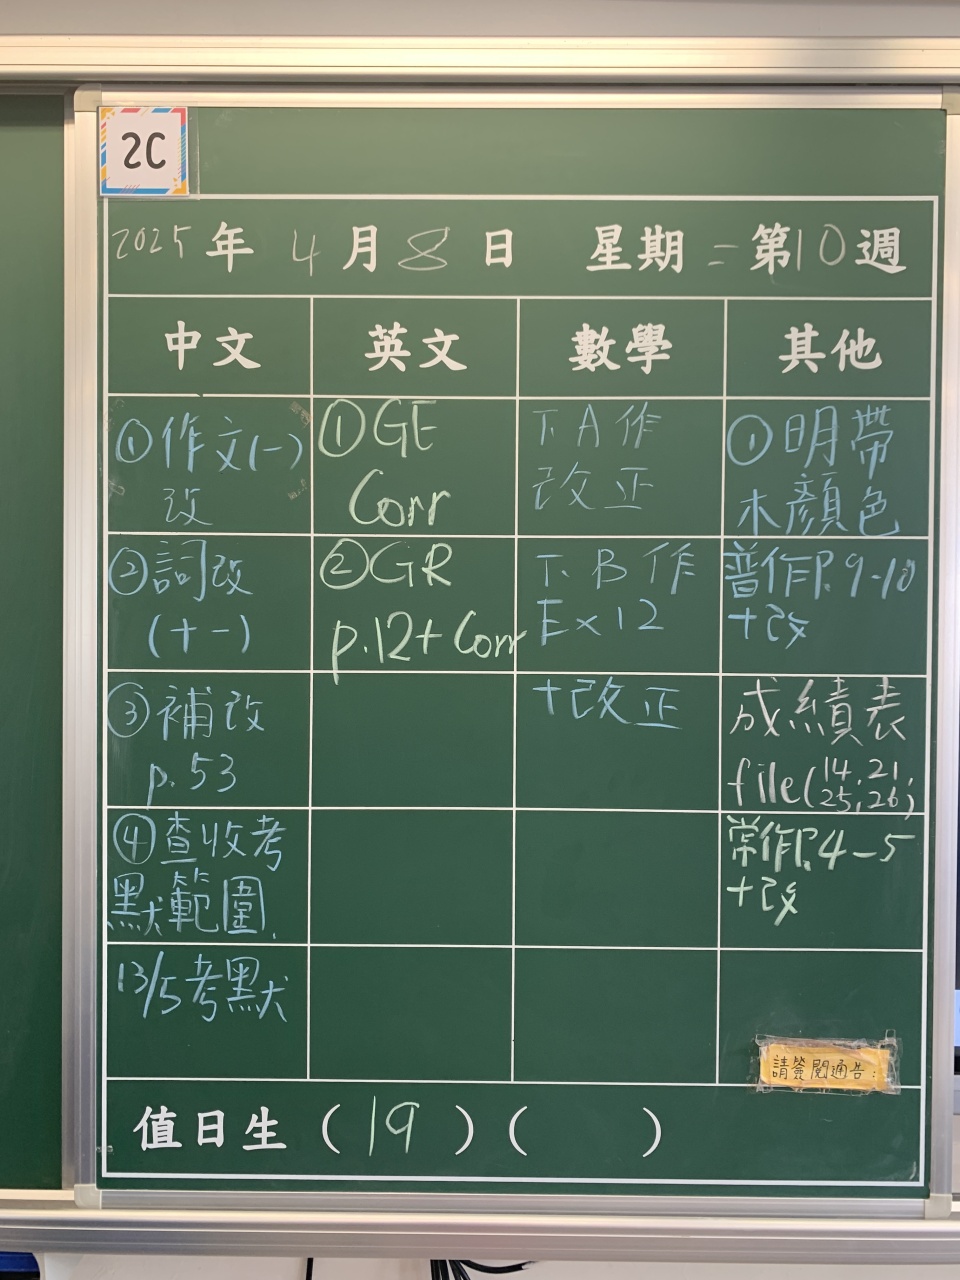 2C
2025年 4月 8日 星期二 第10週
中文 英文 數學 其他
①作文(一)
改
①GE
Corr
下A作
改正
①明帶
木顏色
②詞改
(十一)
②GR
p.12+Corr
下B作
Ex12
普作P.9-10
+改
③補改
p.53
+改正
成績表
file(14,21,
25,26)
④查收考
默範圍
常作P.4-5
+改
13/5考默
請簽閱通告:
值日生(19)( )